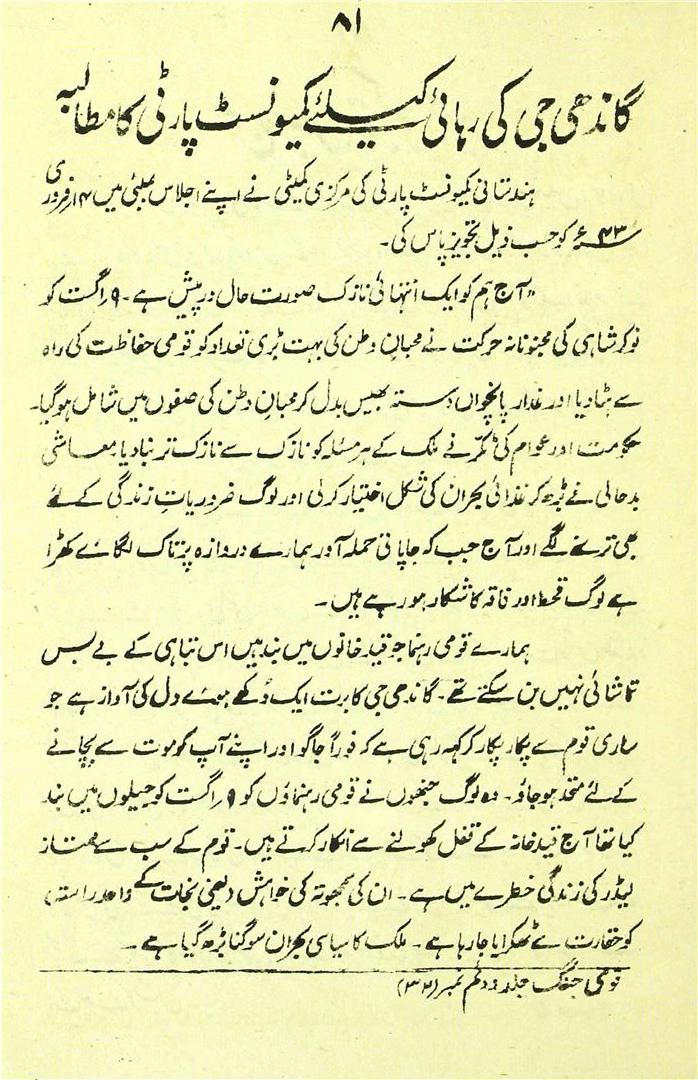 ۸۱
گاندھی جی کی رہائی کیلئے کمیونسٹ پارٹی کا مطالبہ
ہندستانی کمیونسٹ پارٹی کی مرکزی کمیٹی نے اپنے اجلاس بمبئی میں ۱۴ فروری
۴۳ء کو حسب ذیل تجویز پاس کی۔
"آج ہم کو ایک انتہائی نازک صورت حال درپیش ہے۔ ۹ راگست کو
نوکرشاہی کی مجنونانہ حرکت نے محبان وطن کی بہت بڑی تعداد کو قومی حفاظت کی راہ
سے ہٹا دیا اور غدار پانچواں دستہ بھیس بدل کر محبان وطن کی صفوں میں شامل ہوگیا۔
حکومت اور عوام کی ٹکر نے ملک کے ہر مسئلہ کو نازک سے نازک تر بنا دیا معاشی
بدحالی نے بڑھ کر غذائی بحران کی شکل اختیار کرلی اور لوگ ضروریات زندگی کے لئے
بھی ترسنے لگے اور آج جب کہ جاپانی حملہ آور ہمارے دروازہ پر تاک لگائے کھڑا
ہے لوگ قحط اور فاقہ کا شکار ہو رہے ہیں۔
ہمارے قومی رہنما جو قید خانوں میں بند ہیں اس تباہی کے بے بس
تماشائی نہیں بن سکتے تھے۔ گاندھی جی کا برت ایک دُکھے ہوئے دل کی آواز ہے جو
ساری قوم سے پکار پکار کر کہہ رہی ہے کہ فوراً جاگو اور اپنے آپ کو موت سے بچانے
کے لئے متحد ہو جاؤ۔ وہ لوگ جنھوں نے قومی رہنماؤں کو ۹ راگست کو جیلوں میں بند
کیا تھا آج قید خانہ کے قفل کھولنے سے انکار کرتے ہیں۔ قوم کے سب سے ممتاز
لیڈر کی زندگی خطرے میں ہے۔ ان کی سمجھوتہ کی خواہش (یعنی نجات کے واحد راستہ)
کو حقارت سے ٹھکرایا جا رہا ہے۔ ملک کا سیاسی بحران سو گنا بڑھ گیا ہے۔
قومی جنگ جلد دوئم نمبر (۳۲)